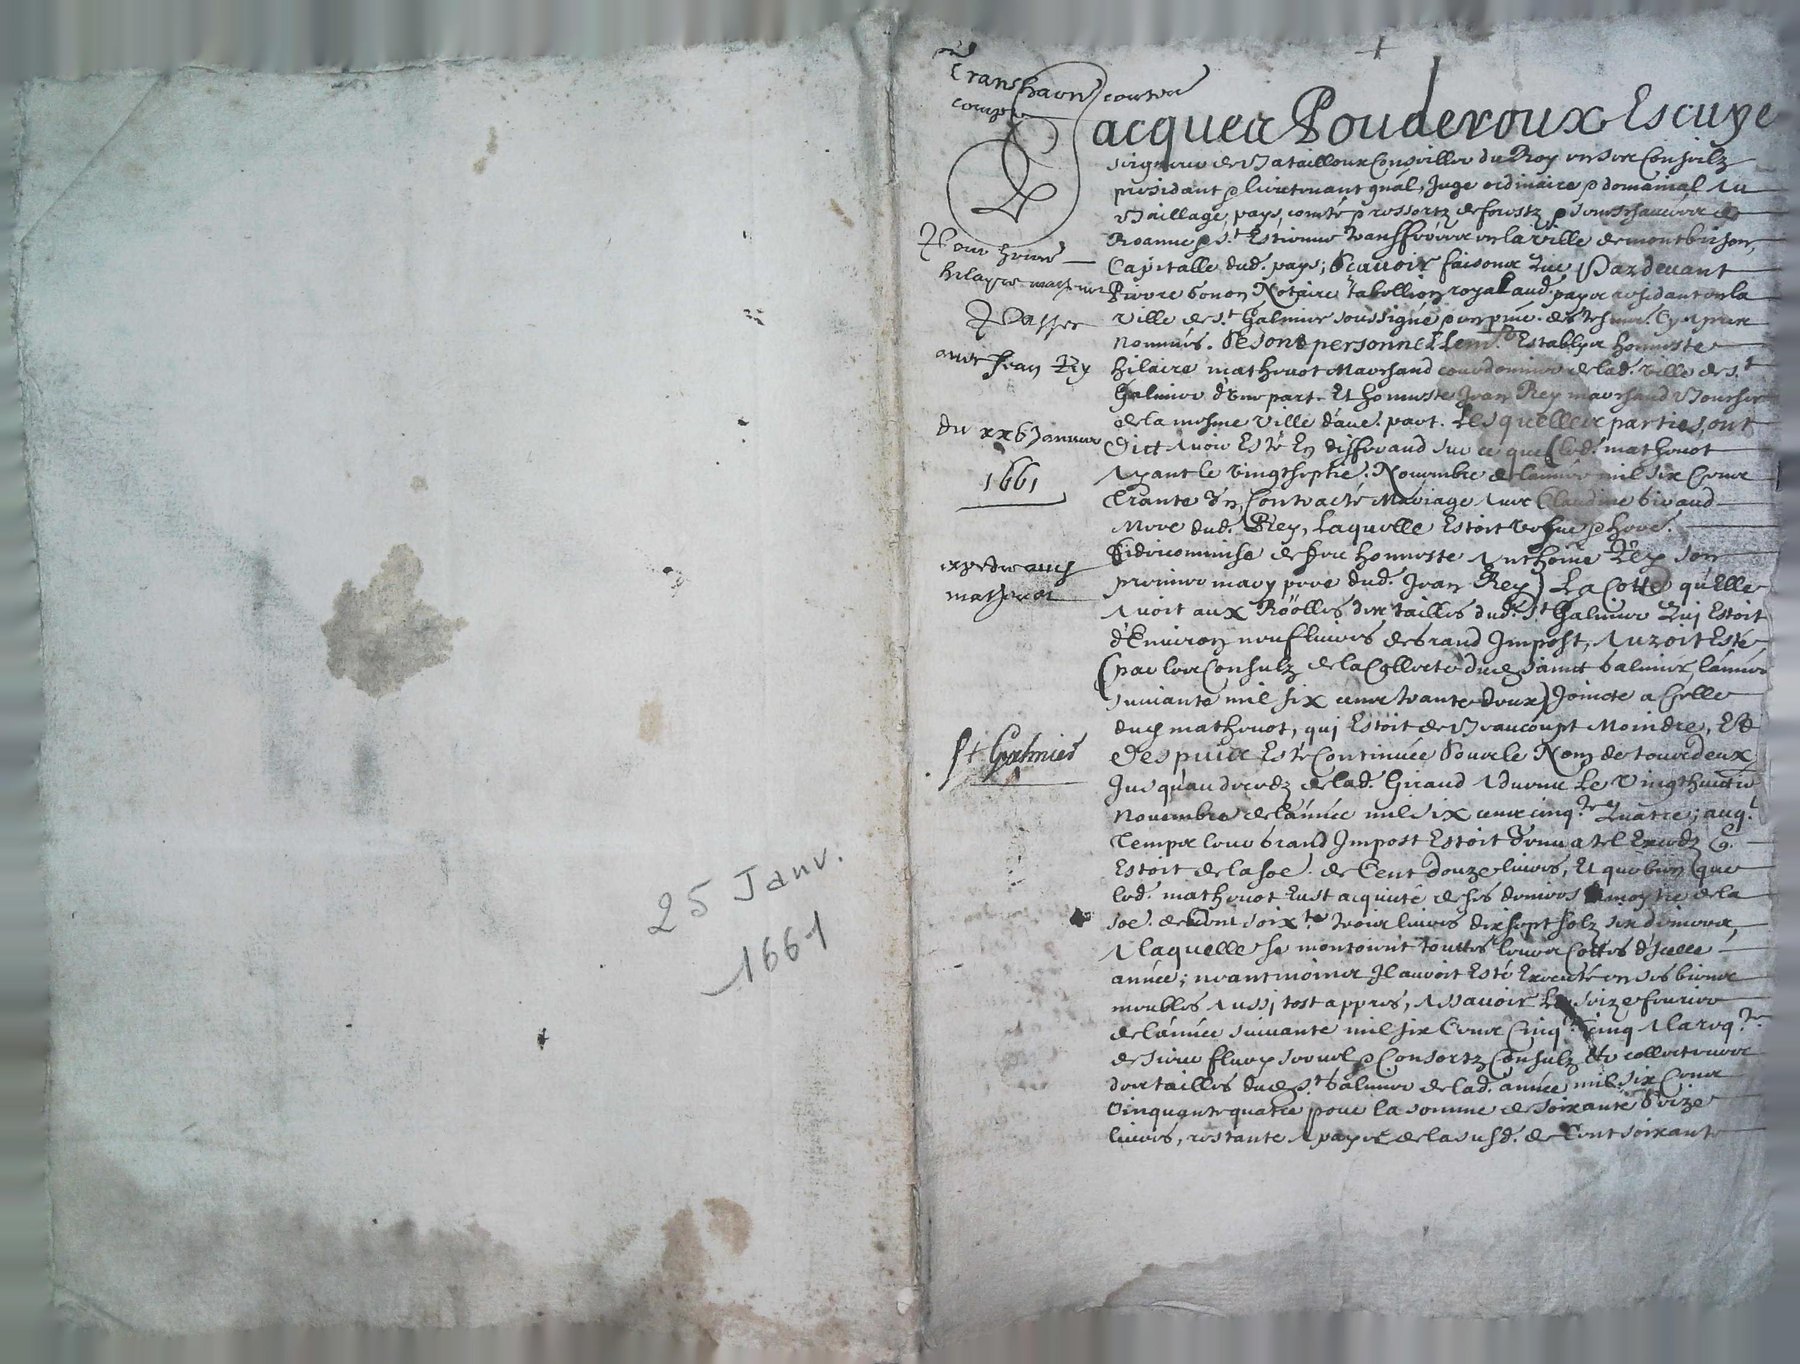 25 Janv.
1661
Transhaon courten
Jacques Pouderoux Escuye
seigneur de Batailloux Conseiller du Roy en ses Conseilz
presidant & lieutenant gnâl, Juge ordinaire & domanial au
Baillage, pays, comté & ressortz de forestz, &
Roanne & St Estienne transferée en la ville de montbrison,
Capitalle dud. pays; Scavoir faisons que Pardevant
Pierre Notaire tabellion royal aud. pays residant en la
ville de St Galmier soussigné & en
Nommés. Se sont personnellemt Establys honneste
hilaire mathevot Marchand courdonnier de lad. ville de St
Galmier d'une part. Et honneste Jean Rey marchand
de la mesme ville d'autre part. Lesquelles parties, ont
Dict Avoir Esté En differand sur ce que led. mathevot
Ayant le vingtseptie. Novembre de l'année mil six Cens
Trante Un, Contracté Mariage Avec Claudine Giraud
Mere dud. Rey, Laquelle Estoit vefve & here.
fideicommise de feu honneste Anthoine Rey son
premier mary pere dud. Jean Rey) La Cotte qu'Elle
Avoit aux Rôolles des tailles dud. St Galmier Qui Estoit
d'Environ neuf livres de Grand Impost, Auroit Esté
(par les Consulz de la Collecte dud. sainct Galmier, l'année
suivante mil six cens trante deux) Joincte a Celle
dud mathevot, qui Estoit de Beaucoup Moindre, Et
Despuis Esté Continuée Soubz le Nom de tous deux
Jusqu'au decedz de lad. Giraud Advenu Le Vingthuictie
Novembre de l'année mil six cens cinqte Quatre; auql
Temps leur Grand Impost Estoit Venu a tel Excedz q.
Estoit de la soe. de Cent douze livres, Et que bien que
led. mathevot Eust acquité de ses deniers la moytié de la
soe. de Cent soixte trois livres dix sept solz six deniers,
A laquelle se montoient touttes leurs Cottes d'Icelle
année; neantmoings Il auroit Esté Executé en ses biens
meubles Aussj tost appres, Assavoir Le seize febvrier
de l'année suivante mil six Cens Cinqte cinq A la reqte
de sieur & Consortz Consulz & collecteurs
des tailles dud. St Galmier de lad. année mil six Cens
Cinquante quatre pour la somme de soixante Seize
livres, restante A payer de la susd. de Cent soixante
Pour honne
hilayre mathevot
Passée
avec Jean Rey
du xxv Janvier
1661
expedié aud
mathevot
St Galmier